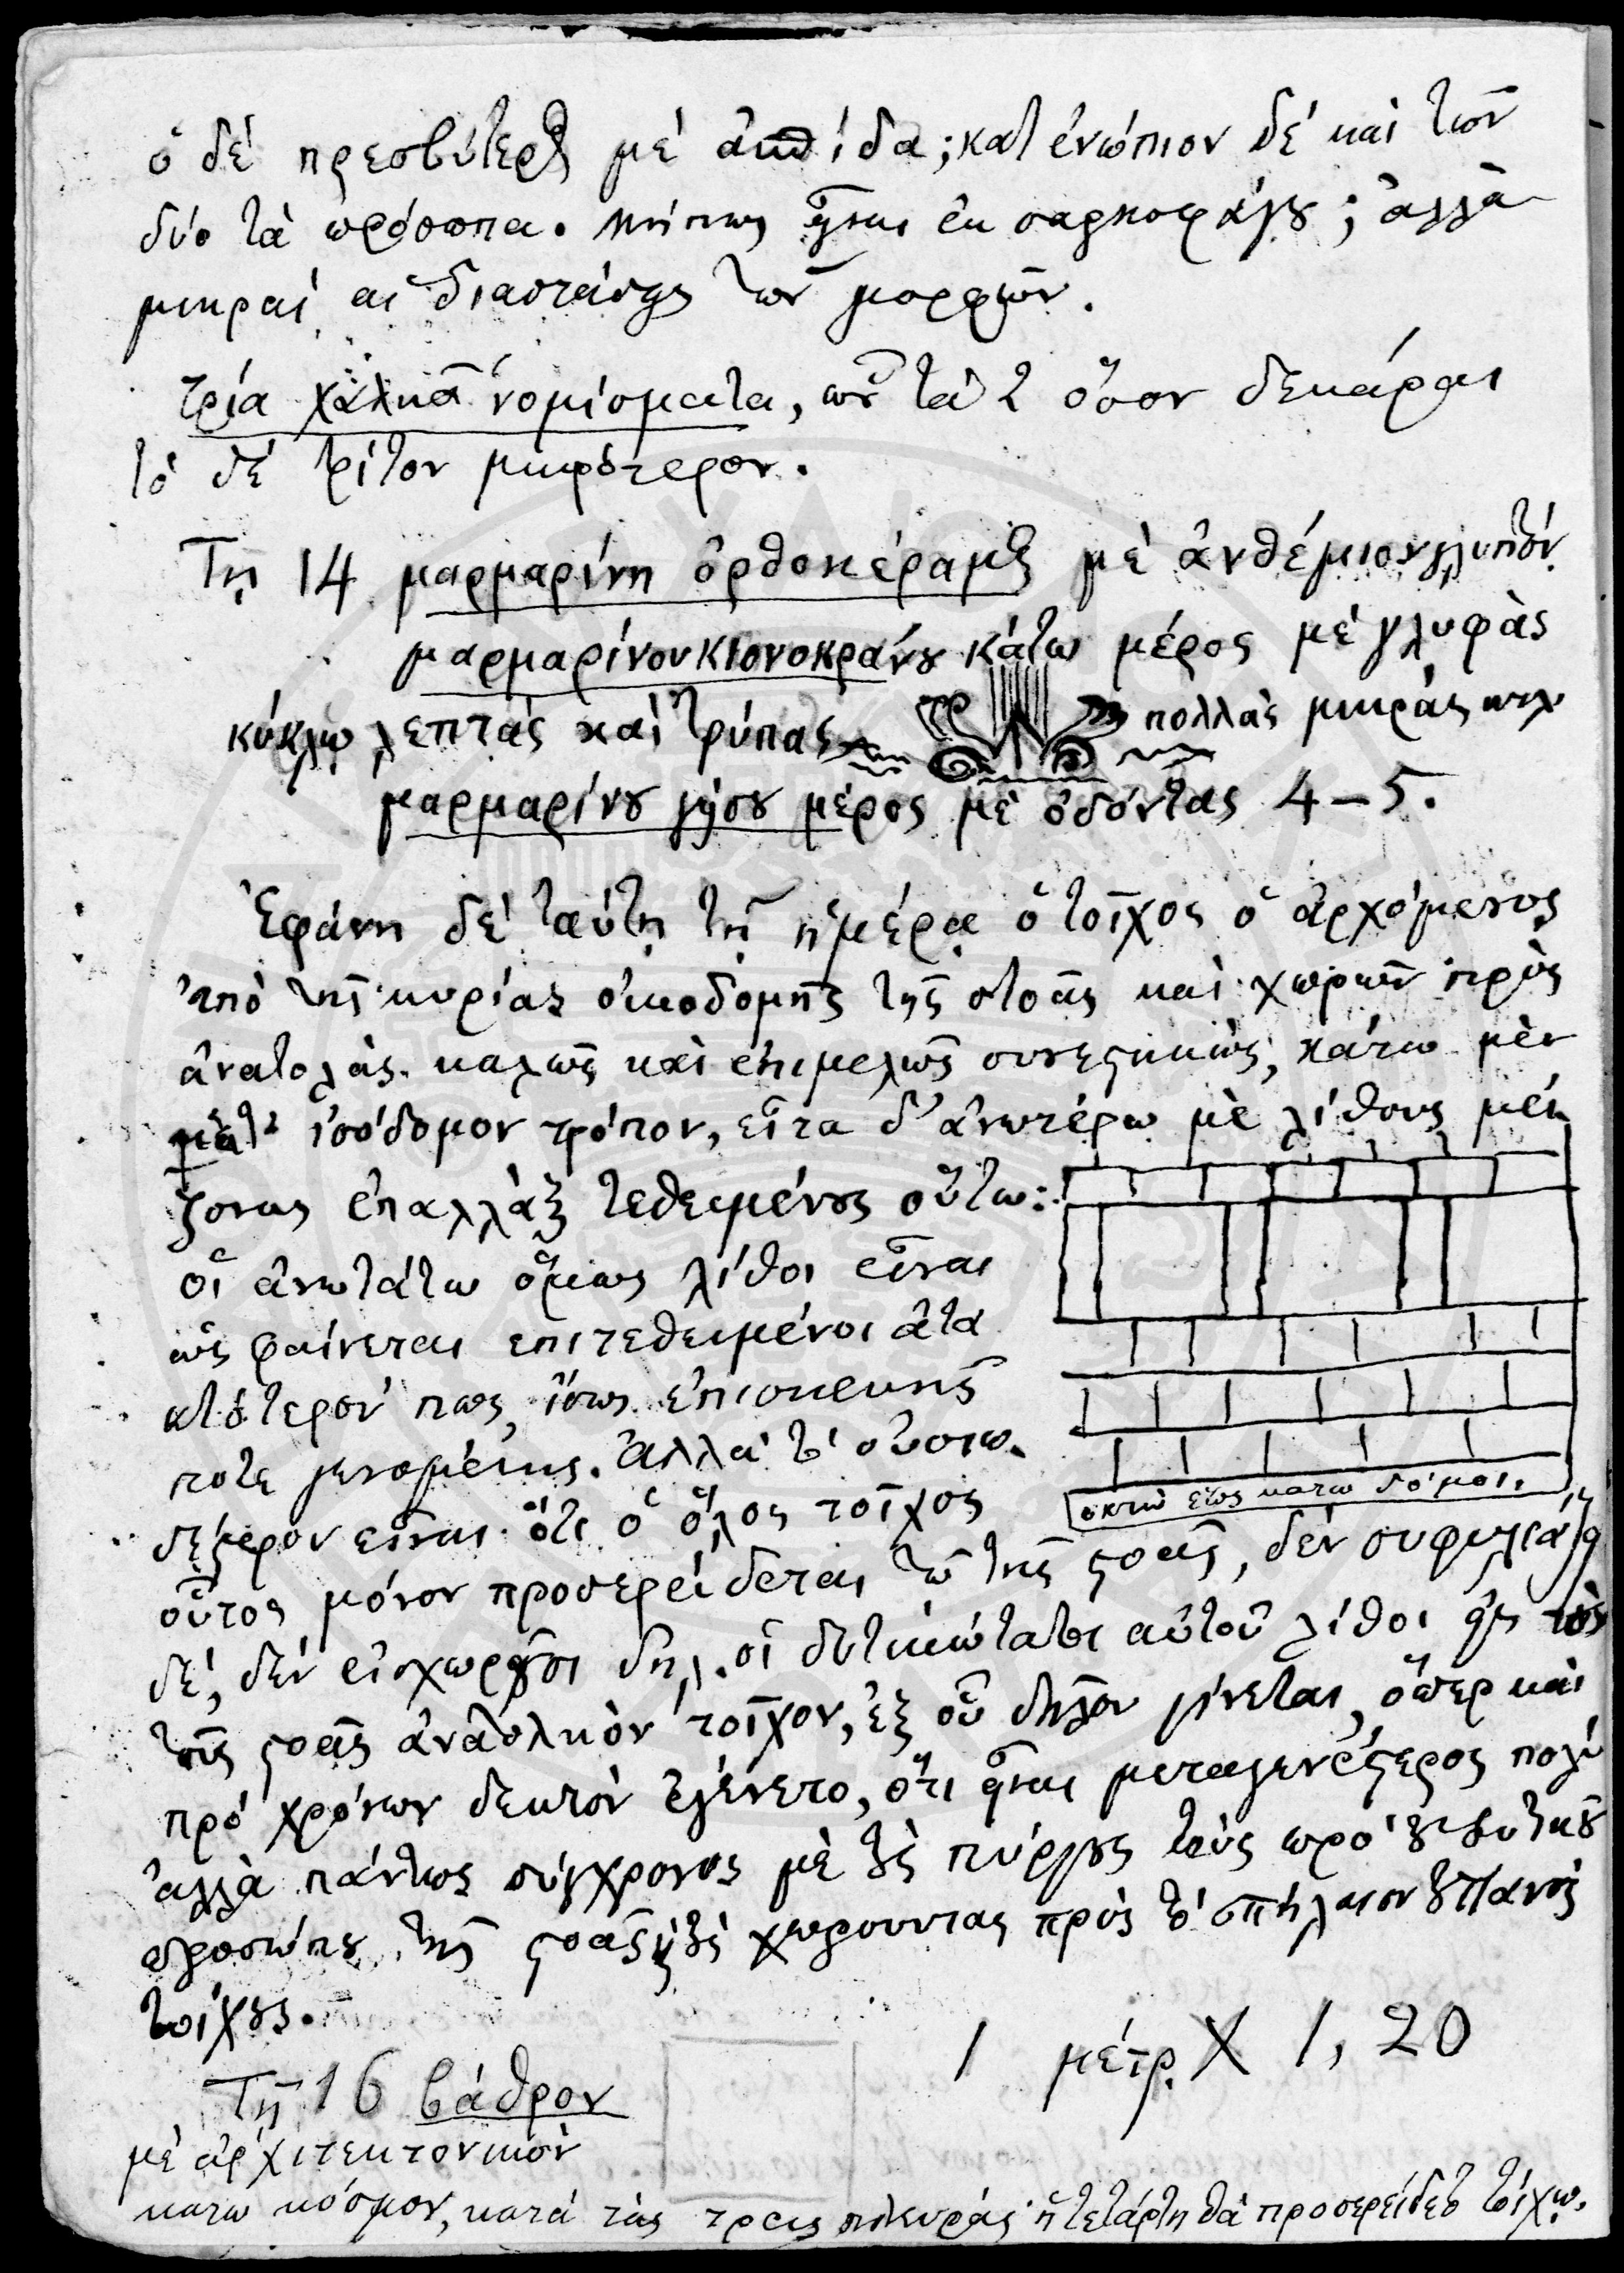 ὁ δέ πρεσβύτερος μέ ἀσπίδα; κατ ἐνώπιον δέ καὶ τῶν
δύο τὰ πρόσωπα. Μήπως εἶναι ἐκ σαρκοφάγου; ἀλλὰ
μικραί αἱ διαστάσεις τῶν μορφῶν.
τρία χαλκᾶ νομίσματα, ὧν τὰ 2 ὅσον δεκάραι
τὸ δέ τρίτον μικρότερον.
Τῇ 14 μαρμαρίνη ὀρθοκέραμος μὲ ἀνθέμιον γλυπτόν
μαρμαρίνου κιονοκράνου κάτω μέρος μέ γλυφὰς
κύκλῳ λεπτάς καὶ τρύπας πολλὰς μικράς
μαρμαρίνου γείσου μέρος μὲ ὀδόντας 4 – 5.
Ἐφάνη δέ ταύτῃ τῇ ἡμέρᾳ ὁ τοῖχος ὁ ἀρχόμενος
ἀπὸ τῆς κυρίας οἰκοδομῆς τῆς στοᾶς καὶ χωρῶν πρὸς
ἀνατολὰς καλῶς καὶ ἐπιμελῶς συνεστηκὼς, κάτω μὲν
κατὰ ἰσόδομον τρόπον, εἶτα δ' ἀνωτέρω μὲ λίθους μεί
ζονας ἐπαλλὰξ τεθειμένους οὕτω:
οἱ ἀνωτάτω ὅμως λίθοι εἶναι
ὡς φαίνεται ἐπιτεθειμένοι ἀτα
κτότερόν πως, ἴσως ἐπισκευῆς
ποτε γενομένης. Ἀλλὰ τὸ οὐσιω
δέστερον εἶναι ὅτι ὁ ὅλος τοῖχος
ὀκτὼ ἕως κάτω δόμοι.
οὗτος μόνον προσερείδεται τῷ τῆς στοᾶς, δέν συμφυλιάζει
δέ, δέν εἰσχωροῦσι δηλ. οἱ δυτικώτατοι αὐτοῦ λίθοι εἰς τὸν
τῆς στοᾶς ἀνατολικὸν τοῖχον, ἐξ οὗ δῆλον γίνεται, ὅπερ καὶ
πρό χρόνων δεκτὸν ἐγένετο, ὅτι εἶναι μεταγενέστερος πολύ
ἀλλὰ πάντως σύγχρονος μὲ τοὺς πύργους τοὺς πρὸ τοῦ δυτικοῦ
προσώπου τῆς στοᾶς τοὺς χωροῦντας πρὸς τὸ σπήλαιον τοῦ Πανός
τοίχους.
1 μέτρ. Χ 1, 20
Τῇ 16 βάθρον
μὲ ἀρχιτεκτονικὸν
κάτω κόσμον, κατά τὰς τρεῖς πλευράς ἡ τετάρτη θὰ προσερείδετο τοίχῳ.